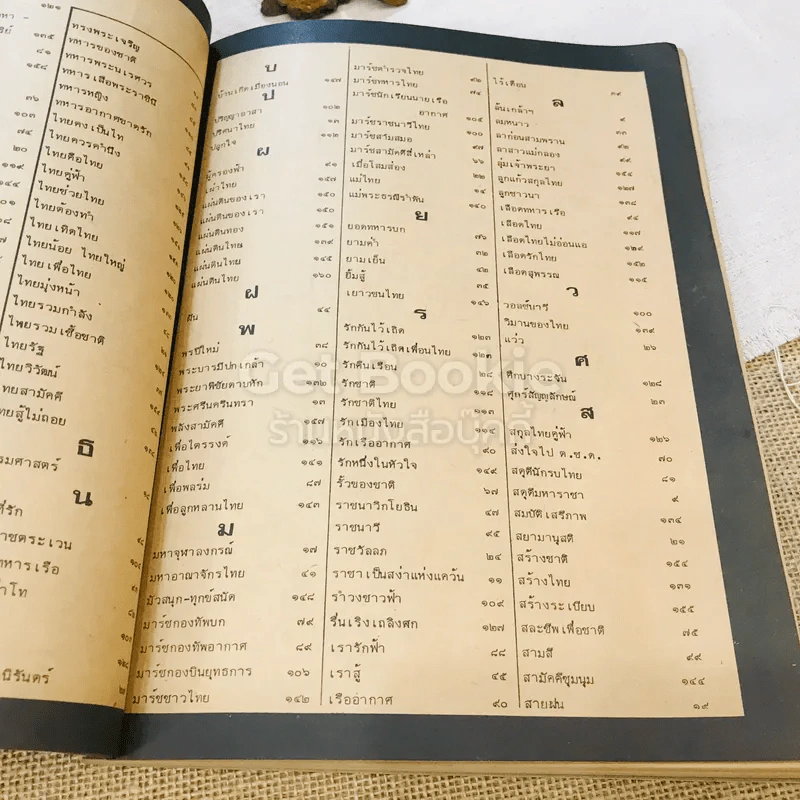 ๑๒๑
ทรงพระเจริญ
๑๓๕
ทหารของชาติ
๘๑
ทหารพระนเรศวร
๑๕๘
ทหารเสือพระราชินี
ทหารหญิง
๓๖
ทหารอากาศขาดรัก
๑๐๓
ไทยคงเป็นไท
๗๔
ไทยควรคำนึง
๒๐
ไทยคือไทย
๑๑๙
ไทยคู่ฟ้า
๑๔๔
ไทยช่วยไทย
ไทยต้องทำ
ไทยเทิดไทย
ไทยน้อย ไทยใหญ่
ไทยเพื่อไทย
ไทยมุ่งหน้า
ไทยรวมกำลัง
ไทยรวมเชื้อชาติ
ไทยรัฐ
ไทยวิวัฒน์
ไทยสามัคคี
ไทยสู้ไม่ถอย
ธ
รมศาสตร์
น
ที่รัก
ทหารเรือ
นิรันดร์
บ
บ้านเกิดเมืองนอน ๑๔๗
ป
ปริญญาอาสา ๑๐๒
ปริศนาไทย ๑๓
ปลูกใจ ๑๑๒
ผ
ผู้ครองฟ้า ๙๑
เผ่าไทย ๑๕๗
แผ่นดินของเรา ๑๕๐
แผ่นดินของเรา ๑๕๐
แผ่นดินทอง ๑๕๑
แผ่นดินไทย ๑๓๙
แผ่นดินไทย ๑๔๕
แผ่นดินไทย ๑๖๐
ฝ
ฝน ๔๔
พ
พรปีใหม่ ๓๘
พระบารมีปกเกล้า ๑๐
พระยาพิชัยดาบหัก ๑๓๒
พระศรีนครินทรา ๑๓
พลังสามัคคี ๑๔๗
เพื่อไตรรงค์ ๑๑๖
เพื่อไทย ๑๔๑
เพื่อพลร่ม ๘๗
เพื่อลูกหลานไทย ๑๔๓
ม
มหาจุฬาลงกรณ์ ๑๗
มหาอาณาจักรไทย ๔๑
มัวสนุก-ทุกข์สนัด ๑๔๘
มาร์ชกองทัพบก ๗๙
มาร์ชกองทัพอากาศ ๘๙
มาร์ชกองบินยุทธการ ๑๐๖
มาร์ชชาวไทย ๑๔๒
มาร์ชตำรวจไทย ๙๖
มาร์ชทหารไทย ๗๔
มาร์ชนักเรียนนายเรือ
อากาศ ๑๐๕
มาร์ชราชนาวีไทย ๑๐๐
มาร์ชสามัคคีสี่เหล่า ๖๖
เมื่อโสมส่อง ๒๒
แม่ไทย ๑๔
แม่พระธรณีรำพัน ๑๔๐
ย
ยอดทหารบก ๗๖
ยามค่ำ ๓๒
ยามเย็น ๔๒
ยิ้มสู้ ๓๕
เยาวชนไทย ๑๔๖
ร
รักกันไว้เถิด ๑๒๓
รักกันไว้เถิดเพื่อนไทย ๑๒๓
รักคืนเรือน ๒๘
รักชาติ ๑๑๘
รักชาติไทย ๑๑๓
รักเมืองไทย ๑๑๔
รักเรืออากาศ ๙๐
รักหนึ่งในหัวใจ ๑๔๙
รั้วของชาติ ๖๗
ราชนาวิกโยธิน ๔๗
ราชนาวี ๙๕
ราชวัลลภ ๒๔
ราชาเป็นสง่าแห่งแคว้น ๑๑
รำวงชาวฟ้า ๑๐๙
รื่นเริงเถลิงศก ๑๒๗
เรารักฟ้า ๘๘
เราสู้ ๔๕
เรืออากาศ ๙๐
ไร้เดือน ๓๙
ล
ล้นเกล้าฯ ๙
ลมหนาว ๓๓
ลาก่อนสามพราน ๙๘
ลาสาวแม่กลอง ๙๒
ลุ่มเจ้าพระยา ๑๕๔
ลูกแก้วสกุลไทย ๑๒๗
ลูกชาวนา ๑๓๘
เลือดทหารเรือ ๙๔
เลือดไทย ๑๑๗
เลือดไทยไม่อ่อนแอ ๑๒๙
เลือดรักไทย ๑๕๒
เลือดสุพรรณ ๑๑๕
ว
วอลซ์นาวี ๑๐๐
วิมานของไทย ๑๓๙
แว่ว ๒๖
ศ
ศึกบางระจัน ๑๒๘
ศุกร์สัญลักษณ์ ๒๓
ส
สกุลไทยคู่ฟ้า ๑๒๖
ส่งใจไป ต.ช.ด. ๗๐
สดุดีนักรบไทย ๘๑
สดุดีมหาราชา ๙
สมบัติเสรีภาพ ๑๓๔
สยามานุสติ ๒๑
สร้างชาติ ๓๑
สร้างไทย ๑๓๑
สร้างระเบียบ ๑๕๕
สละชีพเพื่อชาติ ๗๕
สามสี ๙๙
สามัคคีชุมนุม ๑๔๔
สายฝน ๑๙
Get Bookie
ร้านหนังสือบุ๊คกี้